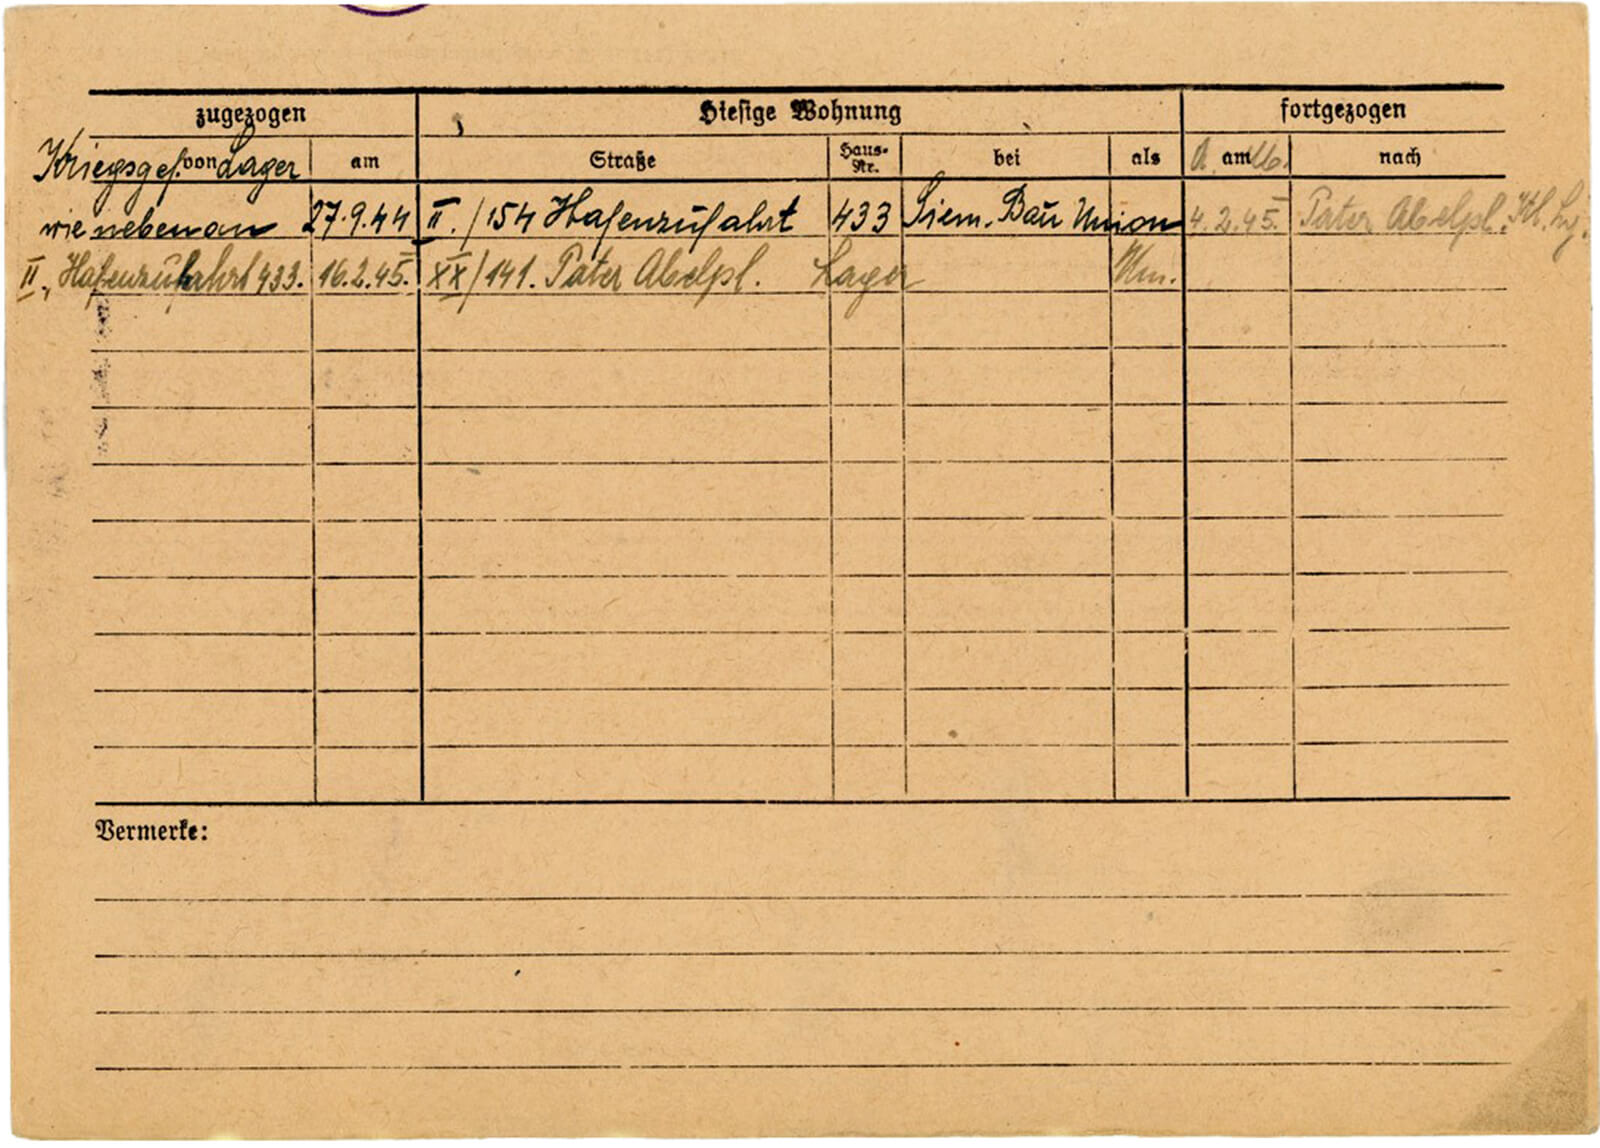 zugezogen Hiesige Wohnung fortgezogen
Kriegsgef. von Lager am Straße Haus-Nr. bei als A. am Ab. nach
wie nebenan 27.9.44 II./154 Hafenzufahrt 433 Siem. Bau Union 4.2.45. Pater Abelpl.
II., Hafenzufahrt 433. 16.2.45. XX/141. Pater Abelpl. Lager
Vermerke: